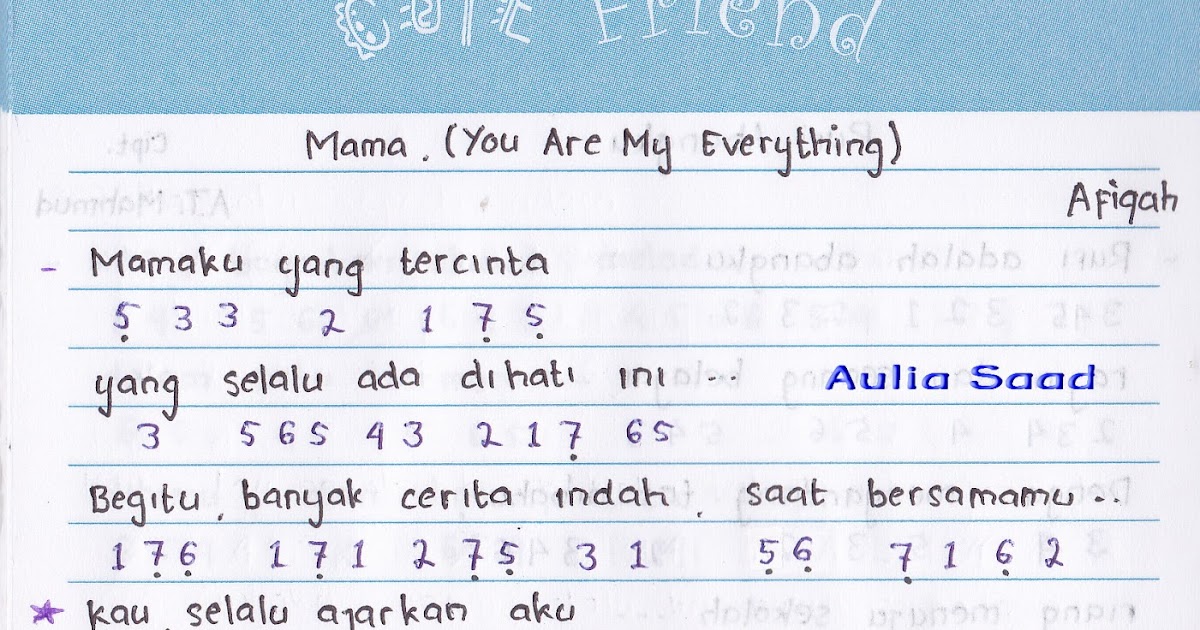 Cute Friend
Mama. (You Are My Everything)
Afiqah
- Mamaku yang tercinta
5̣ 3 3 2 1 7̣ 5̣
yang selalu ada dihati ini ... Aulia Saad
3 5 6 5 4 3 2 1 7̣ 6 5
Begitu banyak cerita indah, saat bersamamu..
1 7̣ 6̣ 1 7̣ 1 2 7̣ 5̣ 3 1 5̣ 6̣ 7̣ 1 6̣ 2
* kau selalu ajarkan aku